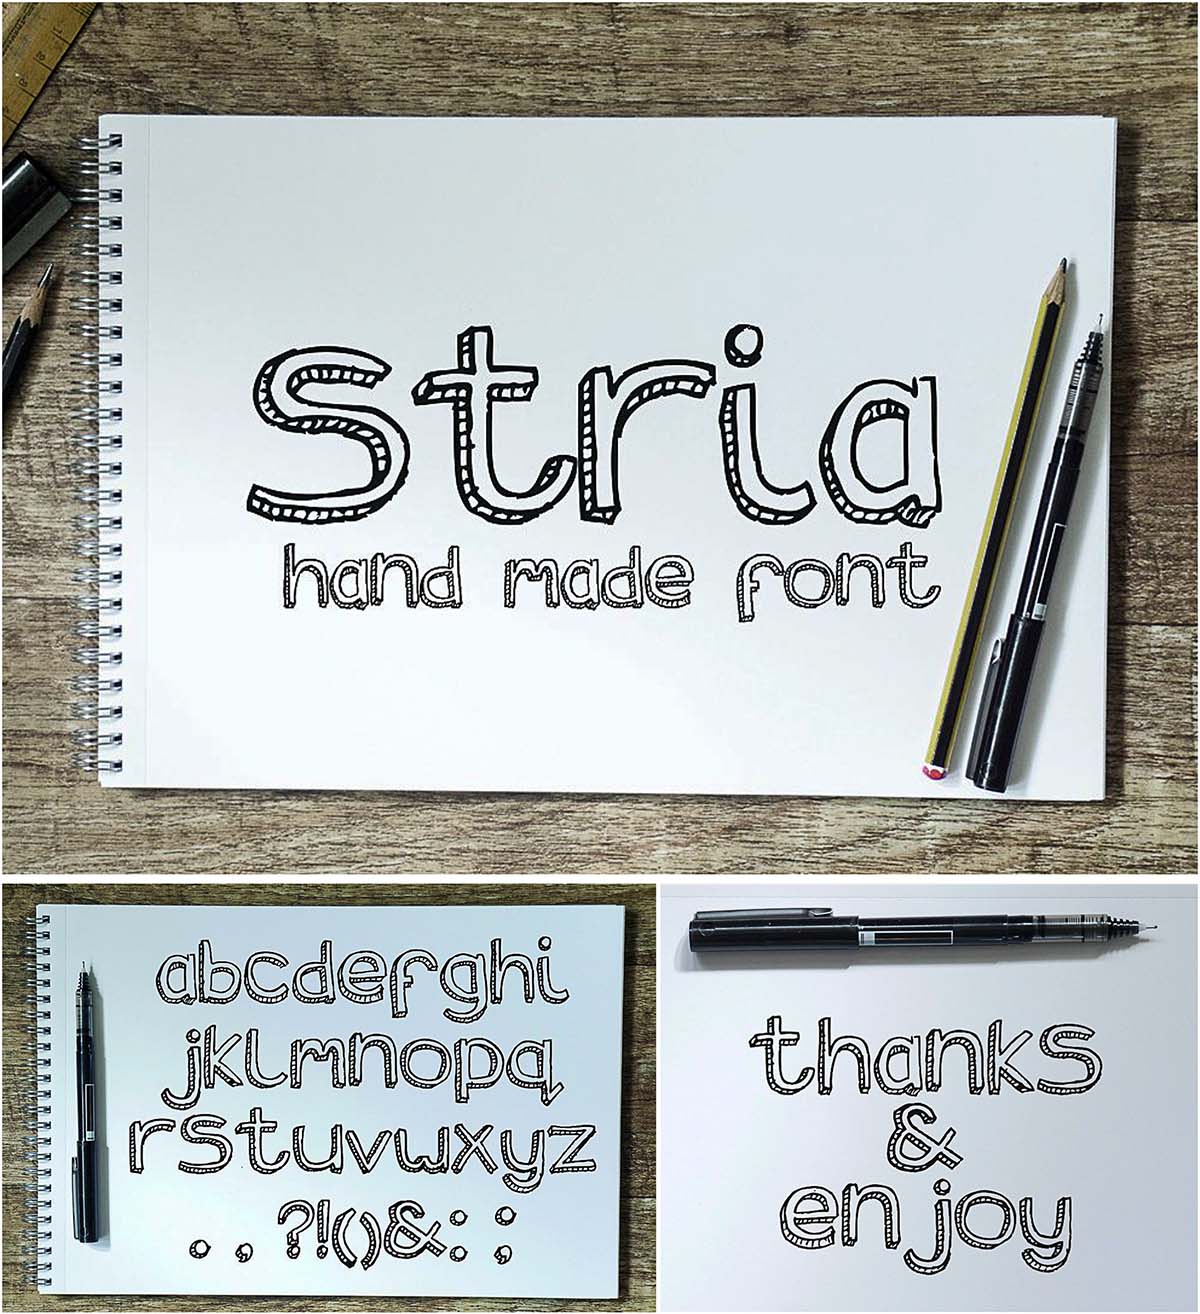 stria
hand made font
abcdefghi
jklmnopq
rstuvwxyz
. , ?!()&: ;
thanks
&
enjoy